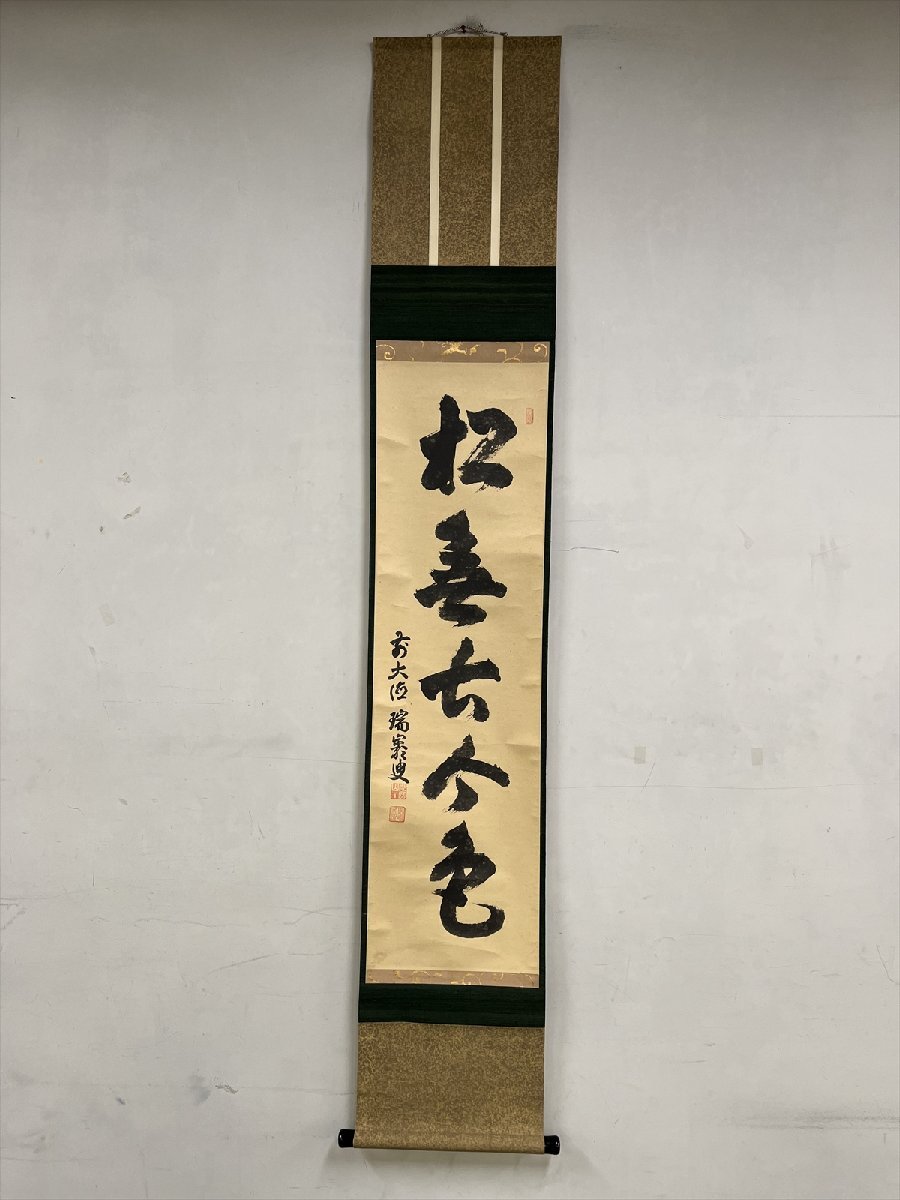 松無古今色
前大徳 瑞巌叟